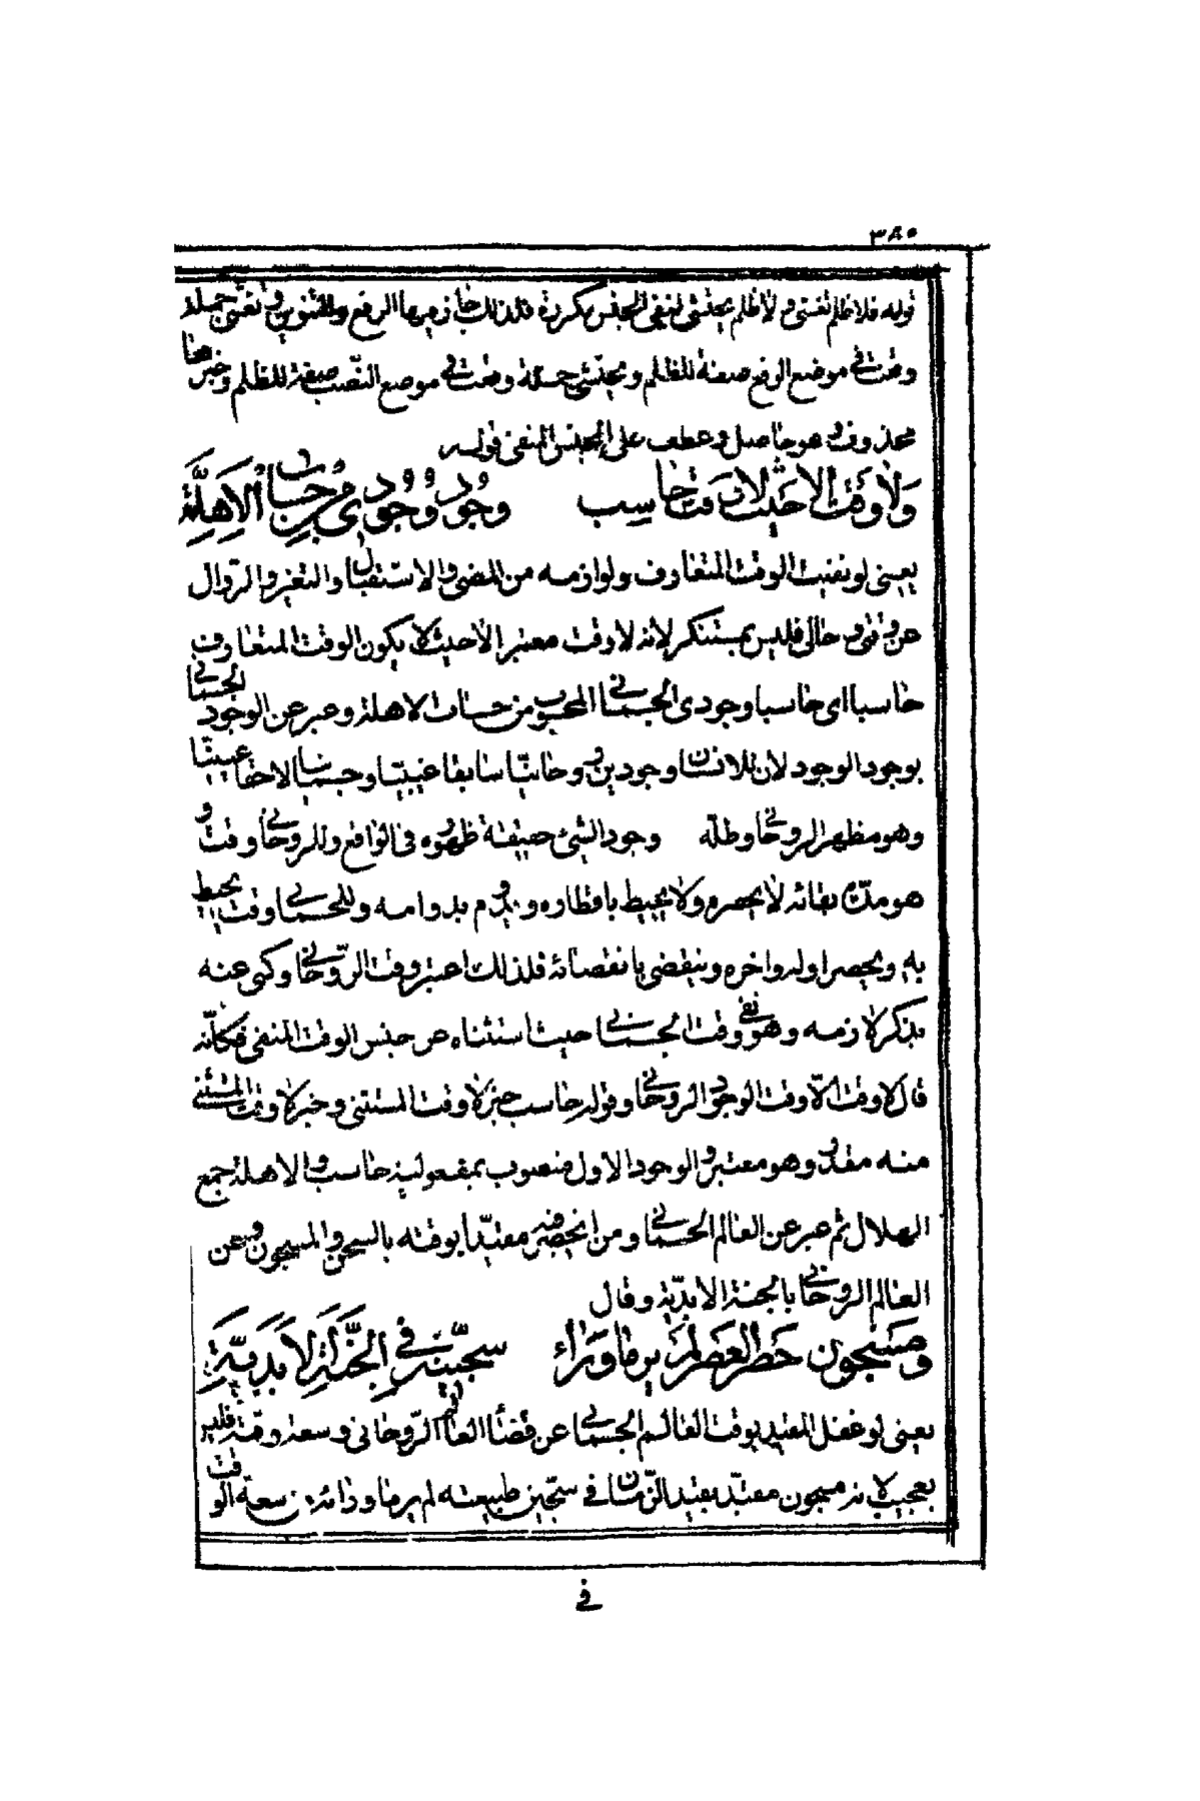 ٣٨٥
قوله فلا ظلم تغشى ولا ظلم يختشى لنفى الجنس مكررة فلذلك جاز فيها الرفع والتنوين وتغشى جملة
وقعت فى موضع الرفع صفة للظلم ويختشى جملة وقعت فى موضع النصب صفة للظلم وخبرهما
محذوف وهو حاصل وعطف على الجنس المنفى قوله
ولا وقت الا حيث لا وقت حاسب وجود وجودى من حساب الاهلة
يعنى لو نفيت الوقت المتعارف ولوازمه من المضى والاستقبال والتغير والزوال
عن وقتى وحالى فليس بمستنكر لانه لا وقت معتبر الا حيث لا يكون الوقت المتعارف
حاسبا اى حاسبا وجودى الجسمانى المحسوب من حساب الاهلة وعبر عن الوجود الجسمانى
بوجود الوجود لان للانسان وجودين روحانيا سابقا غيبيا وجسمانيا لاحقا عينيا
وهو مظهر الروحانى وظله وجود الشئ حقيقة ظهوره فى الواقع وللروحانى وقت و
هو مدة بقائه لا يحصره ولا يحيط باقطاره ويدوم بدوامه وللجسمانى وقت يحيط
به ويحصر اوله واخره وينقضى بانقضائه فلذلك اعتبر وقت الروحانى وكنى عنه
بذكر لازمه وهو نفى وقت الجسمانى حيث استثناه من جنس الوقت المنفى فكانه
قال لا وقت الا وقت الوجود الروحانى وقوله حاسب خبر لا وقت المستثنى وخبر لا وقت المستثنى
منه مقدر وهو معتبر والوجود الاول منصوب بمفعولية حاسب والاهلة جمع
الهلال ثم عبر عن العالم الجسمانى ومن انحصر فيه مقيدا بوقته بالسجن والمسجون وعن
العالم الروحانى بالجنة الابدية وقال
ومسجون حصر العصر لم ير ما وراء سجينه فى الجنة الابدية
يعنى لو غفل المقيد بوقت العالم الجسمانى عن فضاء العالم الروحانى وسعة وقته فليس
بعجيب لانه مسجون مقيد بقيد الزمان فى سجين طبيعته لم ير ما ورائه من سعة الوقت
فى